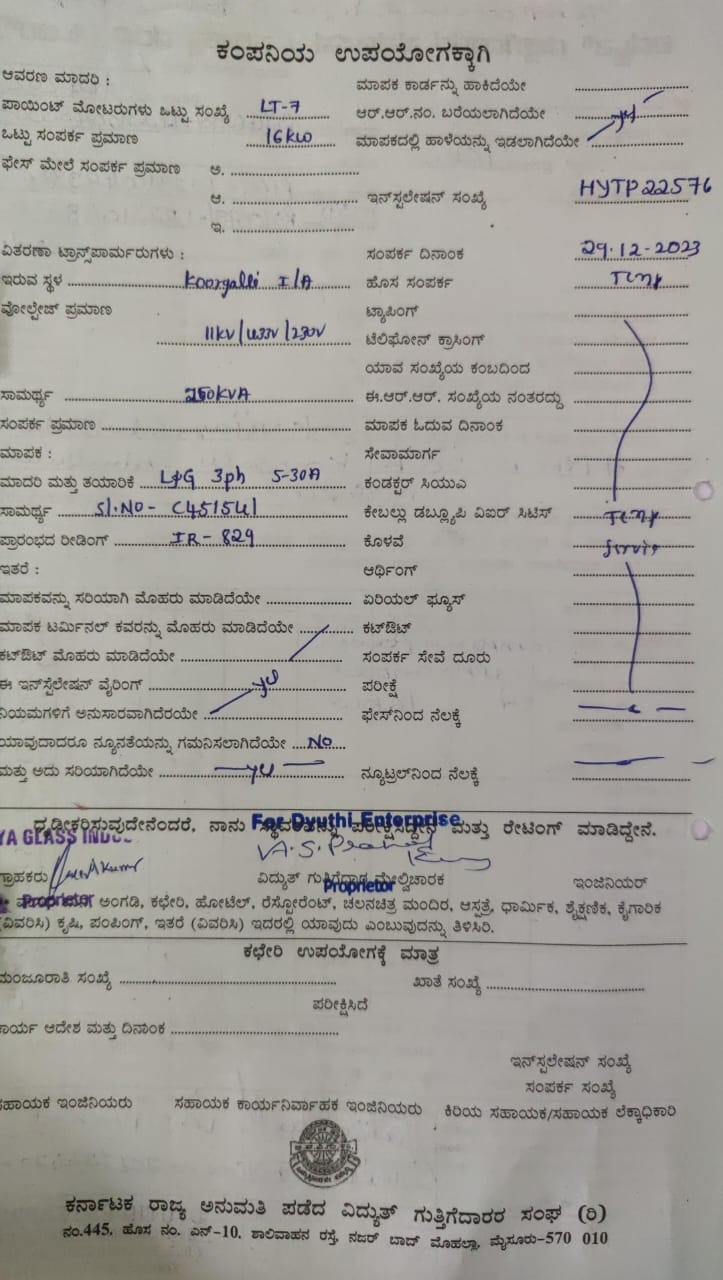 ಕಂಪನಿಯ ಉಪಯೋಗಕ್ಕಾಗಿ
ಆವರಣ ಮಾದರಿ : ಮಾಪಕ ಕಾರ್ಡನ್ನು ಹಾಕಿದೆಯೇ
ಪಾಯಿಂಟ್ ಮೋಟರುಗಳು ಒಟ್ಟು ಸಂಖ್ಯೆ LT-7 ಆರ್.ಆರ್.ನಂ. ಬರೆಯಲಾಗಿದೆಯೇ
ಒಟ್ಟು ಸಂಪರ್ಕ ಪ್ರಮಾಣ 16KW ಮಾಪಕದಲ್ಲಿ ಹಾಳೆಯನ್ನು ಇಡಲಾಗಿದೆಯೇ yes
ಫೇಸ್ ಮೇಲೆ ಸಂಪರ್ಕ ಪ್ರಮಾಣ ಅ.
ಆ. ಇನ್‌ಸ್ಟಲೇಷನ್ ಸಂಖ್ಯೆ HYTP22576
ಇ.
ವಿತರಣಾ ಟ್ರಾನ್ಸ್‌ಪಾರ್ಮರುಗಳು : ಸಂಪರ್ಕ ದಿನಾಂಕ 29.12-2023
ಇರುವ ಸ್ಥಳ Koorgalli I/A ಹೊಸ ಸಂಪರ್ಕ Temp
ವೋಲ್ಟೇಜ್ ಪ್ರಮಾಣ ಟ್ಯಾಪಿಂಗ್
11KV/433V/230V ಟೆಲಿಫೋನ್ ಕ್ರಾಸಿಂಗ್
ಯಾವ ಸಂಖ್ಯೆಯ ಕಂಬದಿಂದ
ಸಾಮರ್ಥ್ಯ 250KVA ಈ.ಆರ್.ಆರ್. ಸಂಖ್ಯೆಯ ನಂತರದ್ದು
ಸಂಪರ್ಕ ಪ್ರಮಾಣ ಮಾಪಕ ಓದುವ ದಿನಾಂಕ
ಮಾಪಕ : ಸೇವಾಮಾರ್ಗ
ಮಾದರಿ ಮತ್ತು ತಯಾರಿಕೆ L&G 3ph 5-30A ಕಂಡಕ್ಟರ್ ಸಿಯುಎ
ಸಾಮರ್ಥ್ಯ Sl.NO- C451541 ಕೇಬಲ್ಲು ಡಬ್ಲ್ಯೂಪಿ ವಿಐರ್ ಸಿಟಿಸ್ Temp
ಪ್ರಾರಂಭದ ರೀಡಿಂಗ್ IR-829 ಕೊಳವೆ Service
ಇತರೆ : ಆರ್ಥಿಂಗ್
ಮಾಪಕವನ್ನು ಸರಿಯಾಗಿ ಮೊಹರು ಮಾಡಿದೆಯೇ ಏರಿಯಲ್ ಫ್ಯೂಸ್
ಮಾಪಕ ಟರ್ಮಿನಲ್ ಕವರನ್ನು ಮೊಹರು ಮಾಡಿದೆಯೇ ಕಟ್‌ಔಟ್
ಕಟ್‌ಔಟ್ ಮೊಹರು ಮಾಡಿದೆಯೇ ಸಂಪರ್ಕ ಸೇವೆ ದೂರು
ಈ ಇನ್‌ಸ್ಟೆಲೇಷನ್ ವೈರಿಂಗ್ yes ಪರೀಕ್ಷೆ
ನಿಯಮಗಳಿಗೆ ಅನುಸಾರವಾಗಿದೆರಯೇ ಫೇಸ್‌ನಿಂದ ನೆಲಕ್ಕೆ
ಯಾವುದಾದರೂ ನ್ಯೂನತೆಯನ್ನು ಗಮನಿಸಲಾಗಿದೆಯೇ No
ಮತ್ತು ಅದು ಸರಿಯಾಗಿದೆಯೇ yes ನ್ಯೂಟ್ರಲ್‌ನಿಂದ ನೆಲಕ್ಕೆ
For Dyuthi Enterprise
ದೃಢೀಕರಿಸುವುದೇನೆಂದರೆ, ನಾನು ಪರೀಕ್ಷಿಸಿದ್ದೇನೆ ಮತ್ತು ರೇಟಿಂಗ್ ಮಾಡಿದ್ದೇನೆ.
YA GLASS
ಗ್ರಾಹಕರು ವಿದ್ಯುತ್ ಗುತ್ತಿಗೆದಾರ ಮೇಲ್ವಿಚಾರಕ ಇಂಜಿನಿಯರ್
Proprietor
Proprietor ಅಂಗಡಿ, ಕಛೇರಿ, ಹೋಟೆಲ್, ರೆಸ್ಟೋರೆಂಟ್, ಚಲನಚಿತ್ರ ಮಂದಿರ, ಆಸ್ಪತ್ರೆ, ಧಾರ್ಮಿಕ, ಶೈಕ್ಷಣಿಕ, ಕೈಗಾರಿಕ
(ವಿವರಿಸಿ) ಕೃಷಿ, ಪಂಪಿಂಗ್, ಇತರೆ (ವಿವರಿಸಿ) ಇದರಲ್ಲಿ ಯಾವುದು ಎಂಬುವುದನ್ನು ತಿಳಿಸಿರಿ.
ಕಛೇರಿ ಉಪಯೋಗಕ್ಕೆ ಮಾತ್ರ
ಮಂಜೂರಾತಿ ಸಂಖ್ಯೆ ಖಾತೆ ಸಂಖ್ಯೆ
ಪರೀಕ್ಷಿಸಿದೆ
ಕಾರ್ಯ ಆದೇಶ ಮತ್ತು ದಿನಾಂಕ
ಇನ್‌ಸ್ಟಲೇಷನ್ ಸಂಖ್ಯೆ
ಸಂಪರ್ಕ ಸಂಖ್ಯೆ
ಸಹಾಯಕ ಇಂಜಿನಿಯರು ಸಹಾಯಕ ಕಾರ್ಯನಿರ್ವಾಹಕ ಇಂಜಿನಿಯರು ಕಿರಿಯ ಸಹಾಯಕ/ಸಹಾಯಕ ಲೆಕ್ಕಾಧಿಕಾರಿ
ಕರ್ನಾಟಕ ರಾಜ್ಯ ಅನುಮತಿ ಪಡೆದ ವಿದ್ಯುತ್ ಗುತ್ತಿಗೆದಾರರ ಸಂಘ (ರಿ)
ನಂ.445, ಹೊಸ ನಂ. ಎನ್-10, ಶಾಲಿವಾಹನ ರಸ್ತೆ, ನಜರ್ ಬಾದ್ ಮೊಹಲ್ಲಾ, ಮೈಸೂರು-570 010